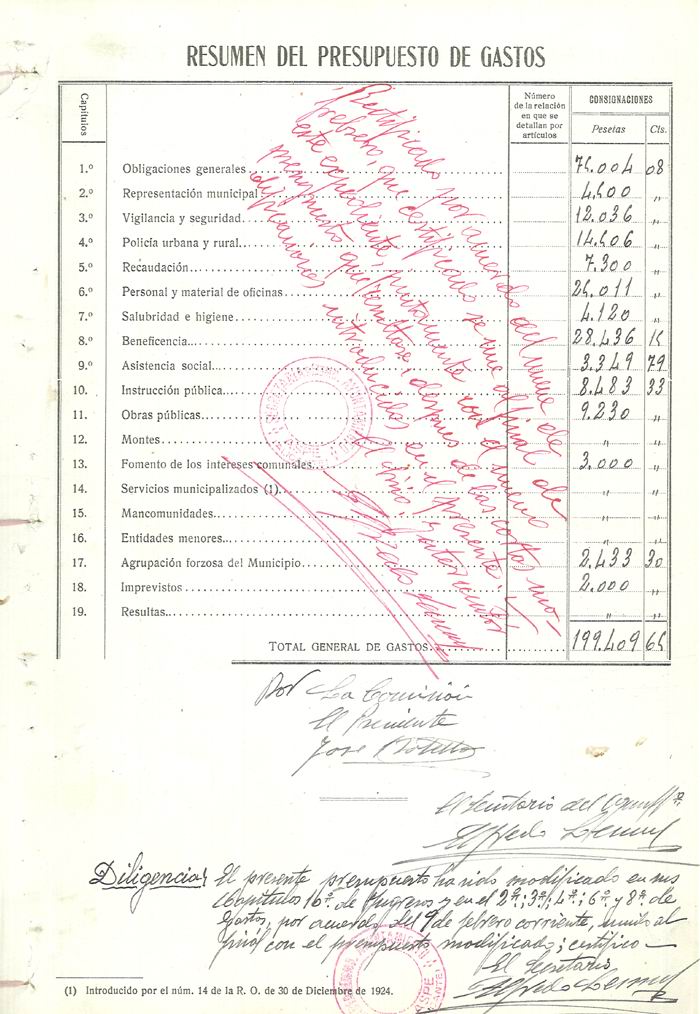 RESUMEN DEL PRESUPUESTO DE GASTOS
Capítulos
Número de la relación en que se detallan por artículos
CONSIGNACIONES
Pesetas Cts.
1.º Obligaciones generales 75.004 08
2.º Representación municipal 4.500 "
3.º Vigilancia y seguridad 12.036 "
4.º Policía urbana y rural 14.506 "
5.º Recaudación 7.300 "
6.º Personal y material de oficinas 25.011 "
7.º Salubridad e higiene 4.120 "
8.º Beneficencia 28.436 15
9.º Asistencia social 3.349 79
10. Instrucción pública 8.483 33
11. Obras públicas 9.230 "
12. Montes " "
13. Fomento de los intereses comunales 3.000 "
14. Servicios municipalizados (1) " "
15. Mancomunidades " "
16. Entidades menores " "
17. Agrupación forzosa del Municipio 2.433 30
18. Imprevistos 2.000 "
19. Resultas " "
TOTAL GENERAL DE GASTOS 199.409 65
Rectificado por acuerdo del nueve de
febrero, que certificado se une al final de
este expediente, juntamente con el nuevo
presupuesto que después de las cortas mo-
dificaciones introducidas en el presente.
El Srio. Interventor
Por La Comisión
El Presidente
José
El Secretario del Ayunt.º
Alfredo
Diligencia; El presente presupuesto ha sido modificado en sus
Capítulos 16º de Ingresos y en el 2º; 3º; 4º; 6º y 8º de
Gastos, por acuerdo del 9 de febrero corriente, unido al
final con el presupuesto modificado; certifico—
El Secretario
Alfredo
ASPE
(1) Introducido por el núm. 14 de la R. O. de 30 de Diciembre de 1924.